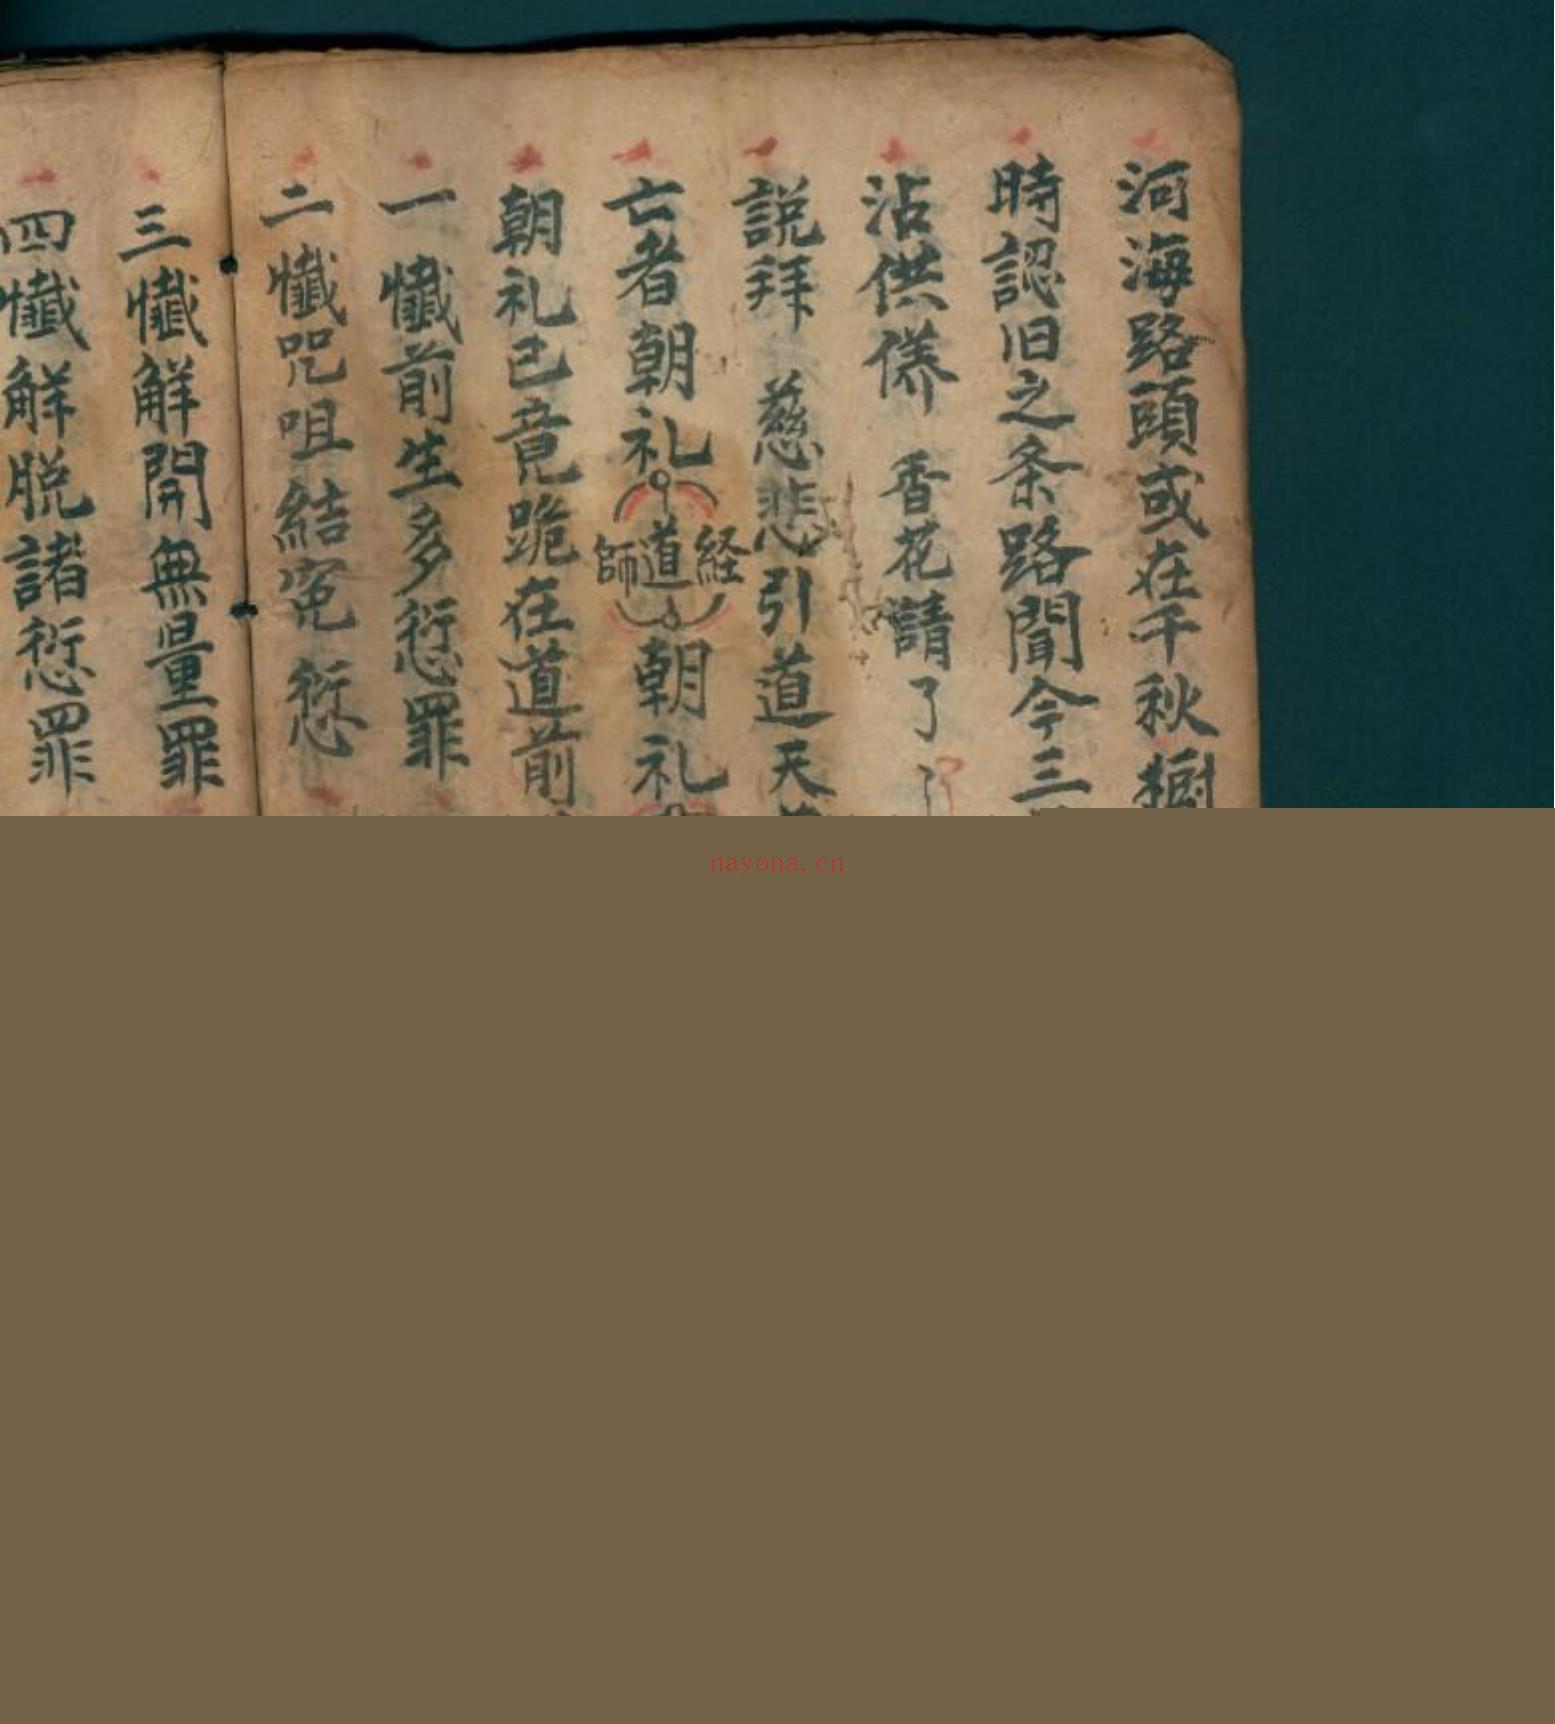 河海路頭或在千秋樹
時認旧之条路聞今三
沾供養 香花請了
説拜 慈悲引道天
亡者朝礼 経道師 朝礼
朝礼已竟跪在道前
一懺前生多愆罪
二懺咒咀結冤愆
三懺解開無量罪
四懺解脱諸愆罪
nayona.cn